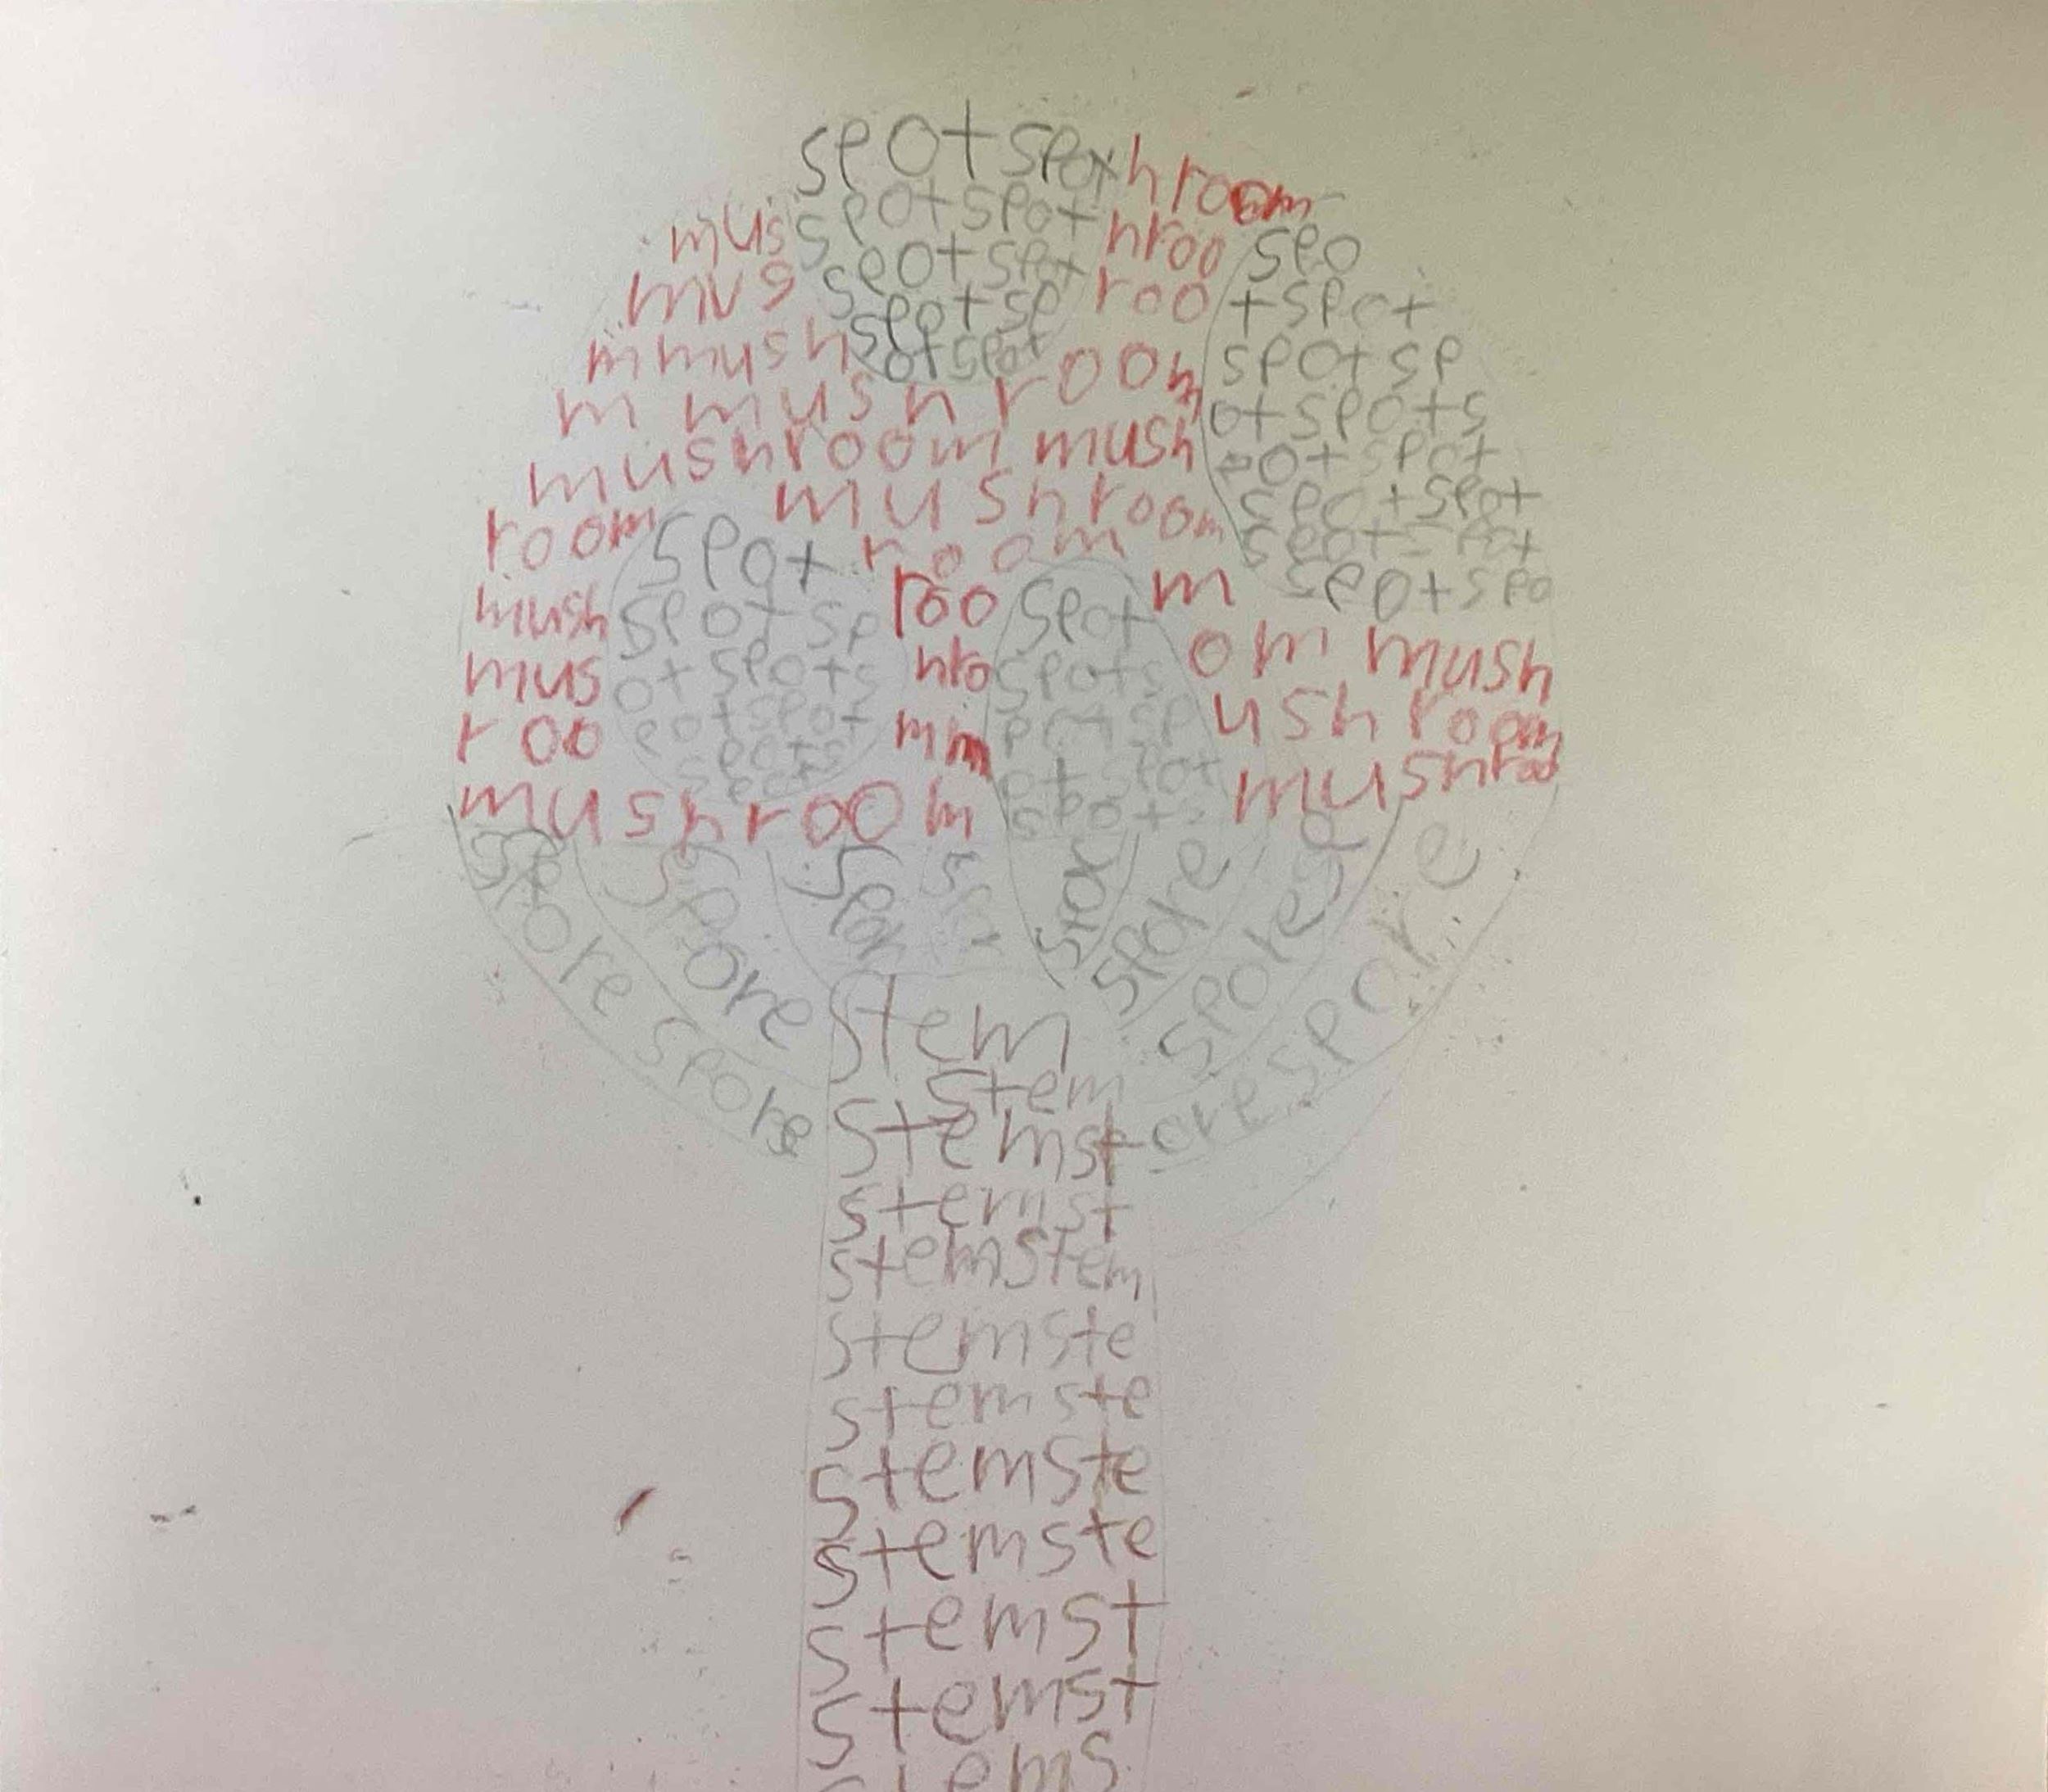 spotspot hroom
mus spotspot hroo spo
mus spotspot roo tspot
mmush spotsp spotsp
otspot room otspots
m mushroom potspot
mushroom mush spotspot
mushroom spotspot
room spot room spotspo
mush spotsp roo spot m
mus otspots hro spots om mush
roo potspot mm potsp ushroom
spots otspot mushroo
spots spot
mushroom
spore spore spor spore sporesp
spore spore
orespore
stem
stem
stemst
stemst
stemstem
stemste
stemste
stemste
stemste
stemst
stemst
stems